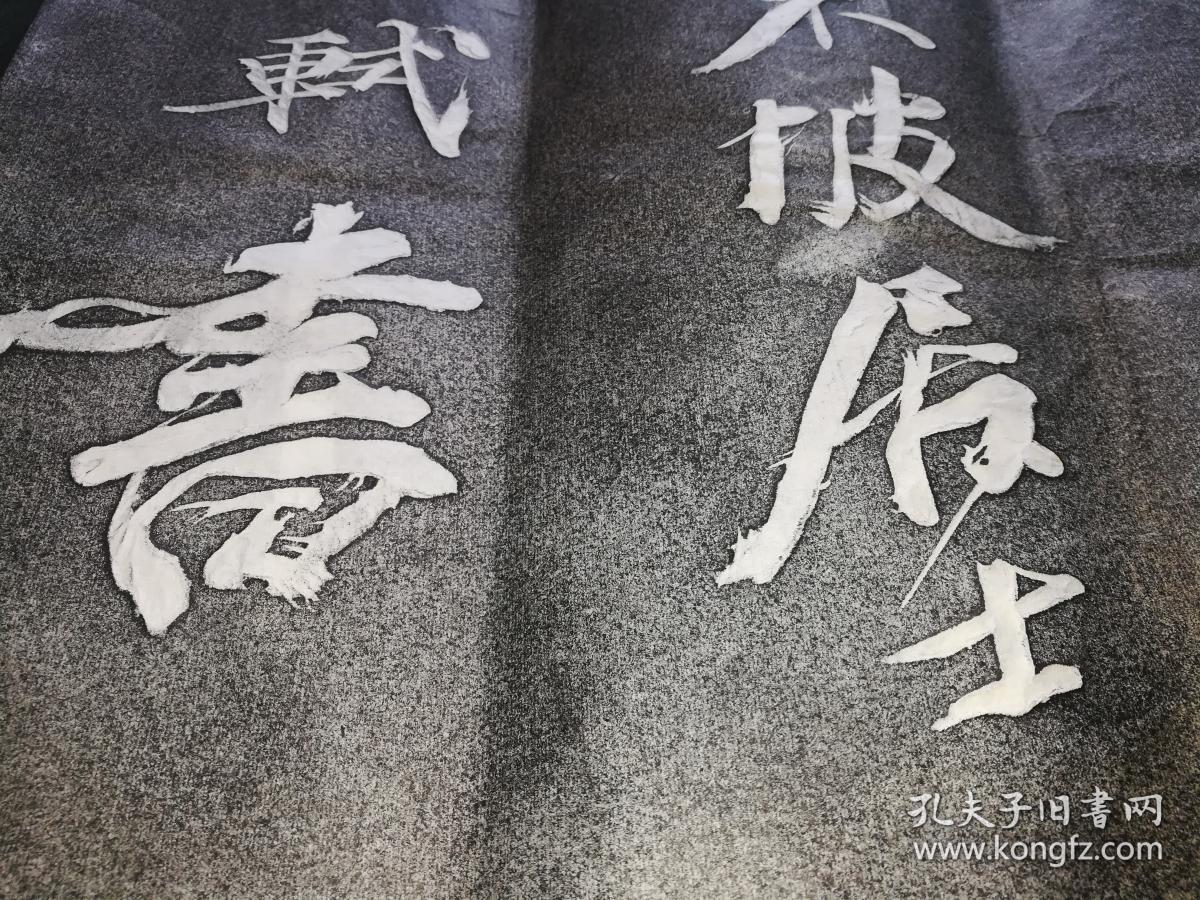 東坡居士
軾書
孔夫子旧書网
www.kongfz.com